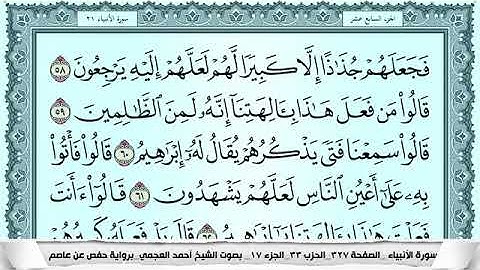 سورة الأنبياء ٢١
الجزء السابع عشر
فَجَعَلَهُمْ جُذَٰذًا إِلَّا كَبِيرًا لَّهُمْ لَعَلَّهُمْ إِلَيْهِ يَرْجِعُونَ ٥٨
قَالُوا۟ مَن فَعَلَ هَٰذَا بِـَٔالِهَتِنَآ إِنَّهُۥ لَمِنَ ٱلظَّٰلِمِينَ ٥٩
قَالُوا۟ سَمِعْنَا فَتًى يَذْكُرُهُمْ يُقَالُ لَهُۥٓ إِبْرَٰهِيمُ ٦٠ قَالُوا۟ فَأْتُوا۟
بِهِۦ عَلَىٰٓ أَعْيُنِ ٱلنَّاسِ لَعَلَّهُمْ يَشْهَدُونَ ٦١ قَالُوٓا۟ ءَأَنتَ
فَعَلْتَ هَٰذَا بِـَٔالِهَتِنَا يَٰٓإِبْرَٰهِيمُ ٦٢ قَالَ بَلْ فَعَلَهُۥ كَبِيرُهُمْ
سورة الأنبياء _ الصفحة ٣٢٧ _ الحزب ٣٣ _ الجزء ١٧ _ بصوت الشيخ أحمد العجمي _ برواية حفص عن عاصم